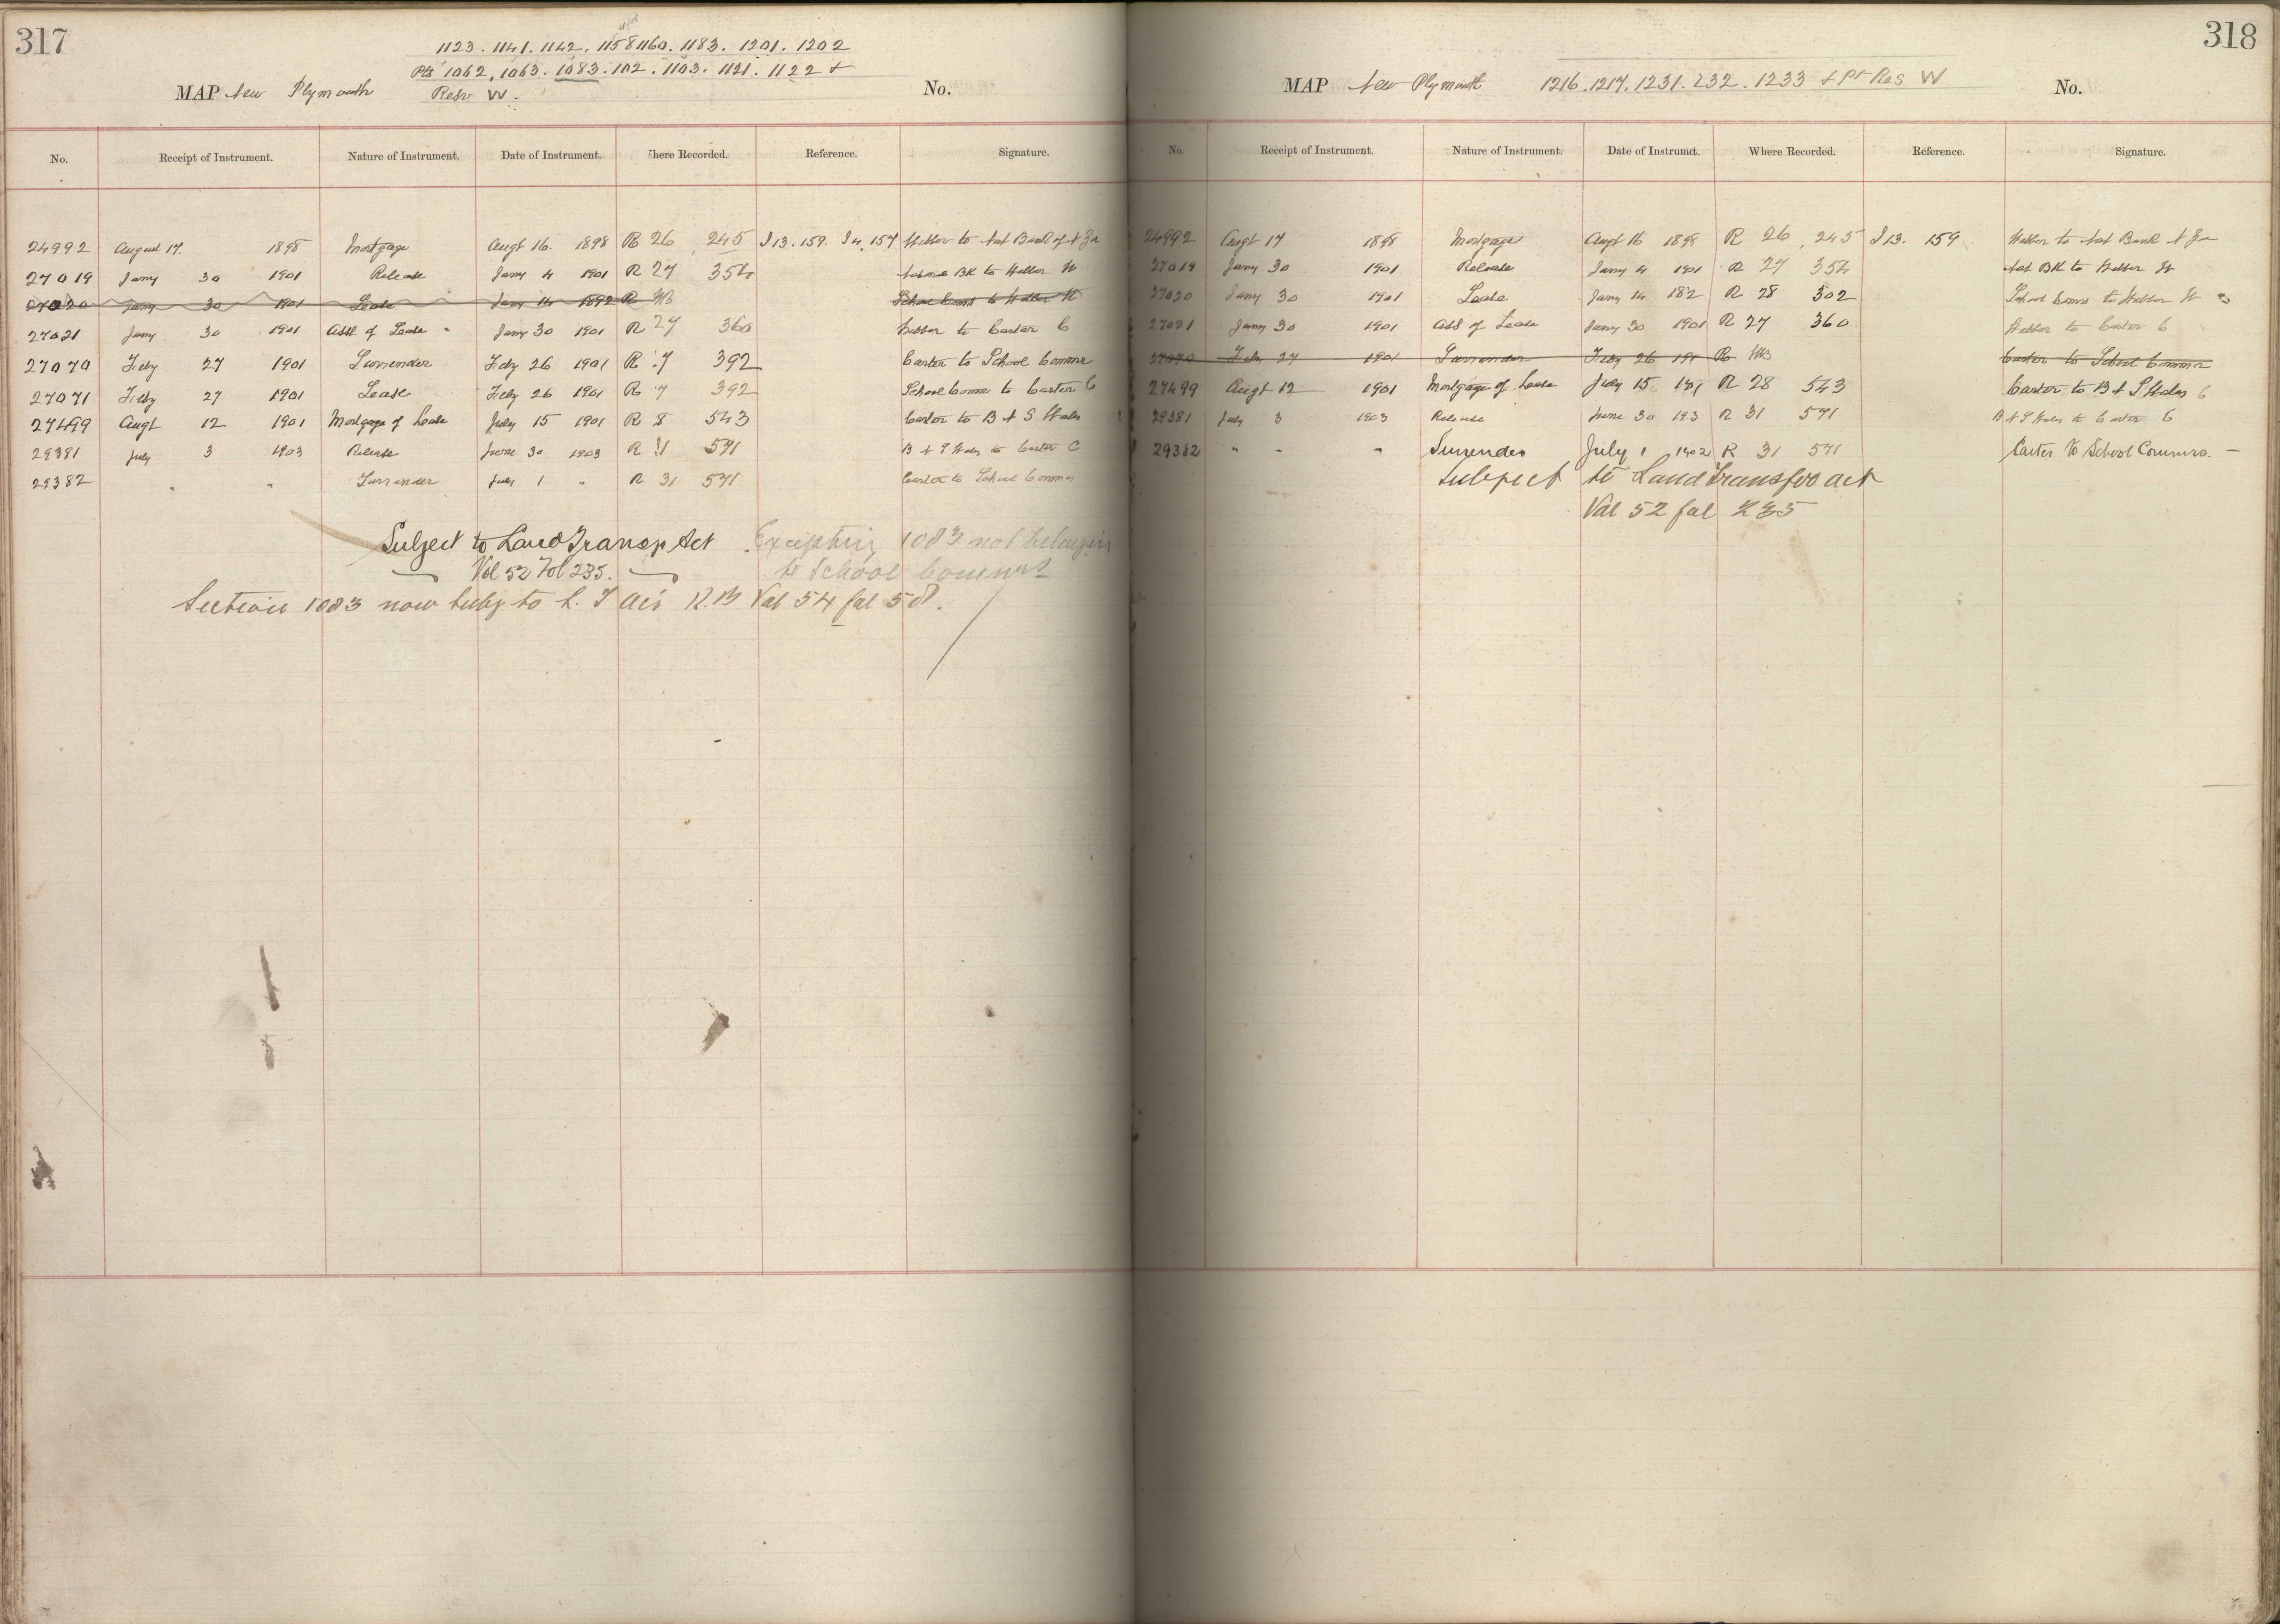 317
1123. 1141. 1142. 1158 1160. 1183. 1201. 1202
Pts 1062, 1063. 1083. 1102. 1103. 1121. 1122 +
MAP New Plymouth Resv W. No.
No. Receipt of Instrument. Nature of Instrument. Date of Instrument. Where Recorded. Reference. Signature.
24992 August 17. 1898 Mortgage Augt 16. 1898 R 26 245 I 13. 159. I 4. 157 Webber to Nat Bank of N Za
27019 Jany 30 1901 Release Jany 4 1901 R 27 354 National BK to Webber W
27020 Jany 30 1901 Lease Jany 14 1892 R School Coms to Webber W
27021 Jany 30 1901 Asst of Lease Jany 30 1901 R 27 360 Webber to Carter C
27070 Feby 27 1901 Surrender Feby 26 1901 R 7 392 Carter to School Commrs
27071 Feby 27 1901 Lease Feby 26 1901 R 7 392 School Comms to Carter C
27499 Augt 12 1901 Mortgage of Lease July 15 1901 R 8 543 Carter to B N S Wales
29381 July 3 1903 Release June 30 1903 R 31 571 B N S Wales to Carter C
29382 " " Surrender July 1 " R 31 571 Carter to School Comms
Subject to Land Transf Act Excepting 1083 not belongin
Vol 52 Fol 235. to School Commrs
Section 1083 now subj to L. T Act R.B Vol 54 fol 508.
318
MAP New Plymouth 1216. 1217. 1231. 1232. 1233 + Pt Res W No.
No. Receipt of Instrument. Nature of Instrument. Date of Instrument. Where Recorded. Reference. Signature.
24992 Augt 17 1898 Mortgage Augt 16 1898 R 26 245 I 13. 159 Webber to Nat Bank N Za
27019 Jany 30 1901 Release Jany 4 1901 R 27 354 Nat BK to Webber W
27020 Jany 30 1901 Lease Jany 14 182 R 28 302 School Coms to Webber W
27021 Jany 30 1901 Asst of Lease Jany 30 1901 R 27 360 Webber to Carter C
27070 Feby 27 1901 Surrender Feby 26 191 R Carter to School Commrs
27499 Augt 12 1901 Mortgage of Lease July 15 191 R 28 543 Carter to B N S Wales
29381 July 3 1903 Release June 30 193 R 31 571 B N S Wales to Carter C
29382 " " " Surrender July 1 1902 R 31 571 Carter to School Commrs.
Subject to Land Transfer act
Vol 52 fol 235